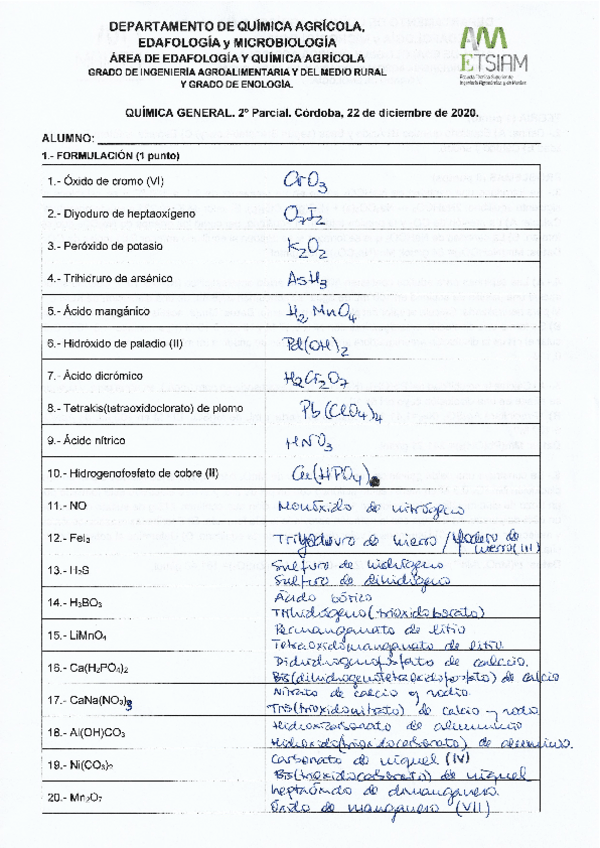 DEPARTAMENTO DE QUÍMICA AGRÍCOLA,
EDAFOLOGÍA y MICROBIOLOGÍA
ÁREA DE EDAFOLOGÍA Y QUÍMICA AGRÍCOLA
GRADO DE INGENIERÍA AGROALIMENTARIA Y DEL MEDIO RURAL
Y GRADO DE ENOLOGÍA.
ETSIAM
Escuela Técnica Superior de
Ingeniería Agronómica y de Montes
QUÍMICA GENERAL. 2º Parcial. Córdoba, 22 de diciembre de 2020.
ALUMNO:
1.- FORMULACIÓN (1 punto)
1.- Óxido de cromo (VI) CrO3
2.- Diyoduro de heptaoxígeno O7I2
3.- Peróxido de potasio K2O2
4.- Trihidruro de arsénico AsH3
5.- Ácido mangánico H2MnO4
6.- Hidróxido de paladio (II) Pd(OH)2
7.- Ácido dicrómico H2Cr2O7
8.- Tetrakis(tetraoxidoclorato) de plomo Pb(ClO4)4
9.- Ácido nítrico HNO3
10.- Hidrogenofosfato de cobre (II) Cu(HPO4)
11.- NO Monóxido de nitrógeno
12.- FeI3 Triyoduro de hierro / Yoduro de
hierro(III)
13.- H2S Sulfuro de hidrógeno
Sulfuro de dihidrógeno
14.- H3BO3 Ácido bórico
Trihidrógeno(trioxidoborato)
15.- LiMnO4 Permanganato de litio
Tetraoxidomanganato de litio
16.- Ca(H2PO4)2 Dihidrogenofosfato de calcio.
Bis(dihidrogenotetraoxidofosfato) de calcio
17.- CaNa(NO3)3 Nitrato de calcio y sodio.
Tris(trioxidonitrato) de calcio y sodio
18.- Al(OH)CO3 Hidroxicarbonato de aluminio
Hidroxido(trioxidocarbonato) de aluminio.
19.- Ni(CO3)2 Carbonato de niquel (IV)
Bis(trioxidocarbonato) de niquel
20.- Mn2O7 heptaóxido de dimanganeso.
Óxido de manganeso (VII)